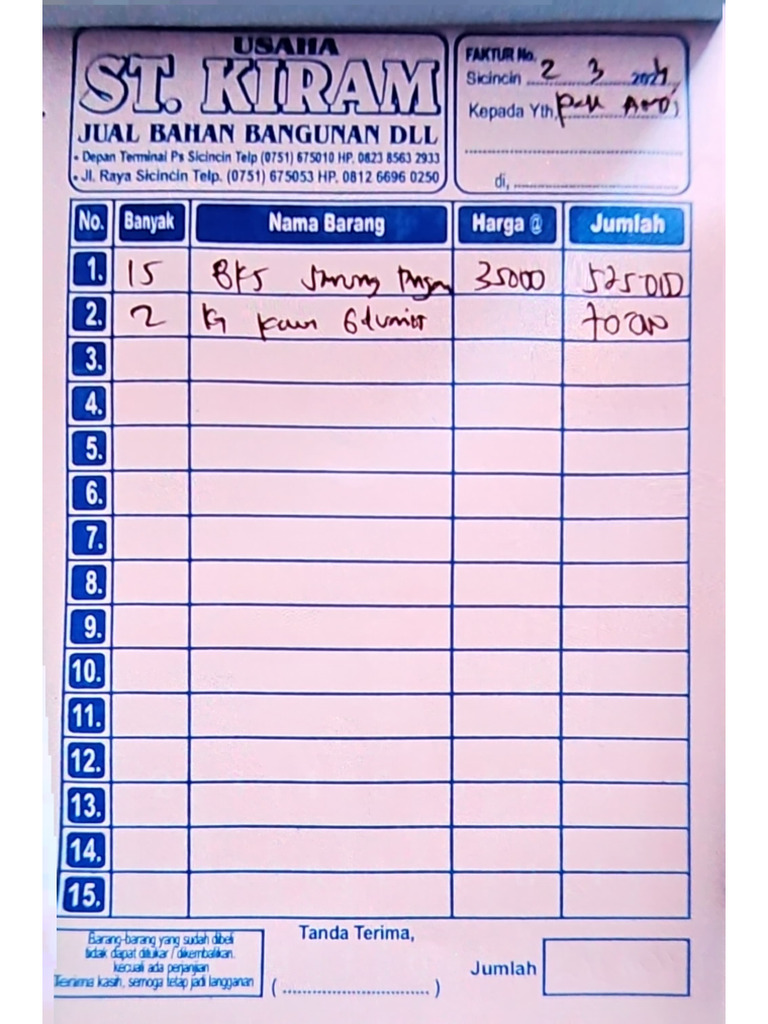 USAHA
ST. KIRAM
JUAL BAHAN BANGUNAN DLL
• Depan Terminal Ps Sicincin Telp (0751) 675010 HP. 0823 8563 2933
• Jl. Raya Sicincin Telp. (0751) 675053 HP. 0812 6696 0250
FAKTUR No.
Sicincin 2 3 2024
Kepada Yth,
di,
No. Banyak Nama Barang Harga @ Jumlah
1. 15 BKS Sarung 35000 525000
2. 2 70000
3.
4.
5.
6.
7.
8.
9.
10.
11.
12.
13.
14.
15.
Barang-barang yang sudah dibeli
tidak dapat ditukar / dikembalikan.
kecuali ada perjanjian
Terima kasih, semoga tetap jadi langganan
Tanda Terima,
(..............................)
Jumlah